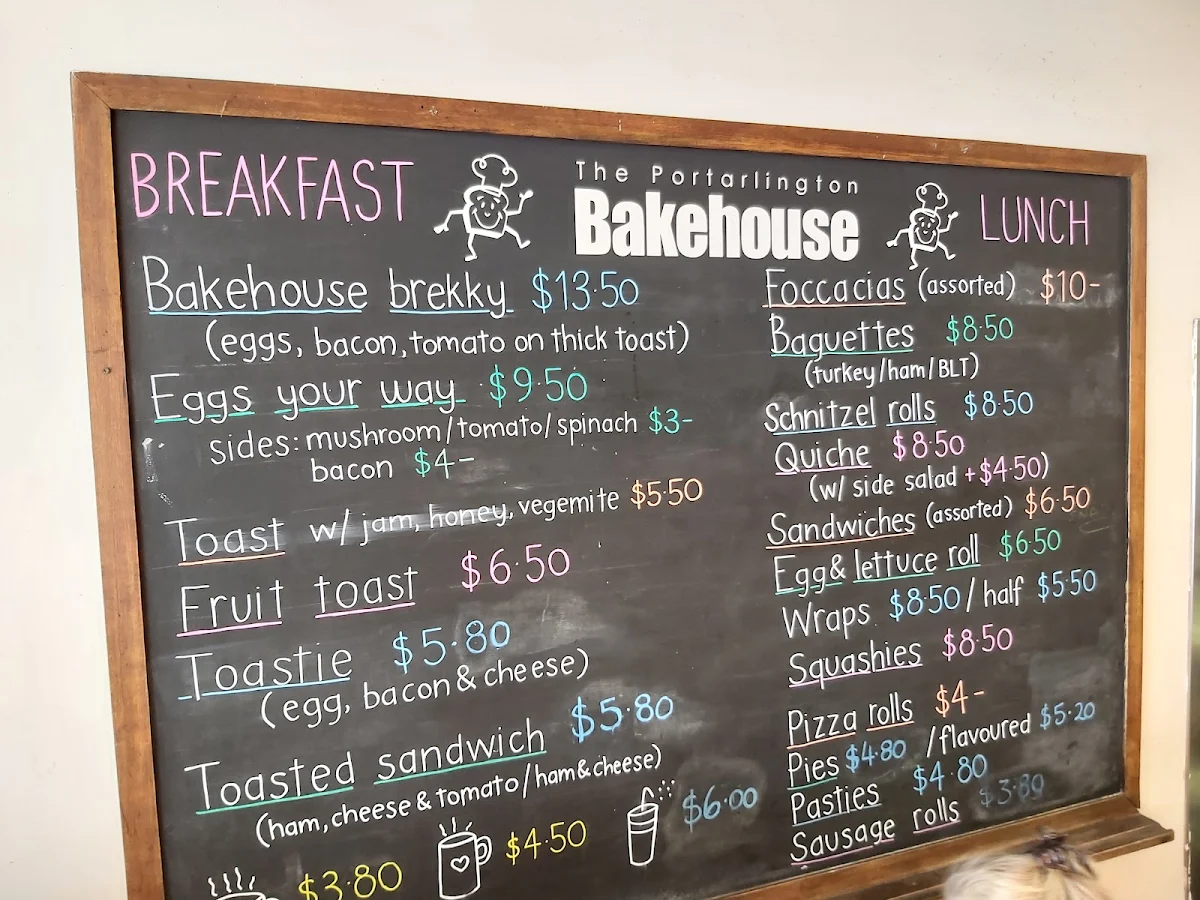 BREAKFAST
The Portarlington
Bakehouse
LUNCH
Bakehouse brekky $13.50
(eggs, bacon, tomato on thick toast)
Eggs your way $9.50
sides: mushroom/tomato/spinach $3-
bacon $4-
Toast w/ jam, honey, vegemite $5.50
Fruit toast $6.50
Toastie $5.80
(egg, bacon & cheese)
Toasted sandwich $5.80
(ham, cheese & tomato/ham & cheese)
$3.80 $4.50 $6.00
Foccacias (assorted) $10-
Baguettes $8.50
(turkey/ham/BLT)
Schnitzel rolls $8.50
Quiche $8.50
(w/ side salad +$4.50)
Sandwiches (assorted) $6.50
Egg & lettuce roll $6.50
Wraps $8.50/half $5.50
Squashies $8.50
Pizza rolls $4-
Pies $4.80 /flavoured $5.20
Pasties $4.80
Sausage rolls $3.80